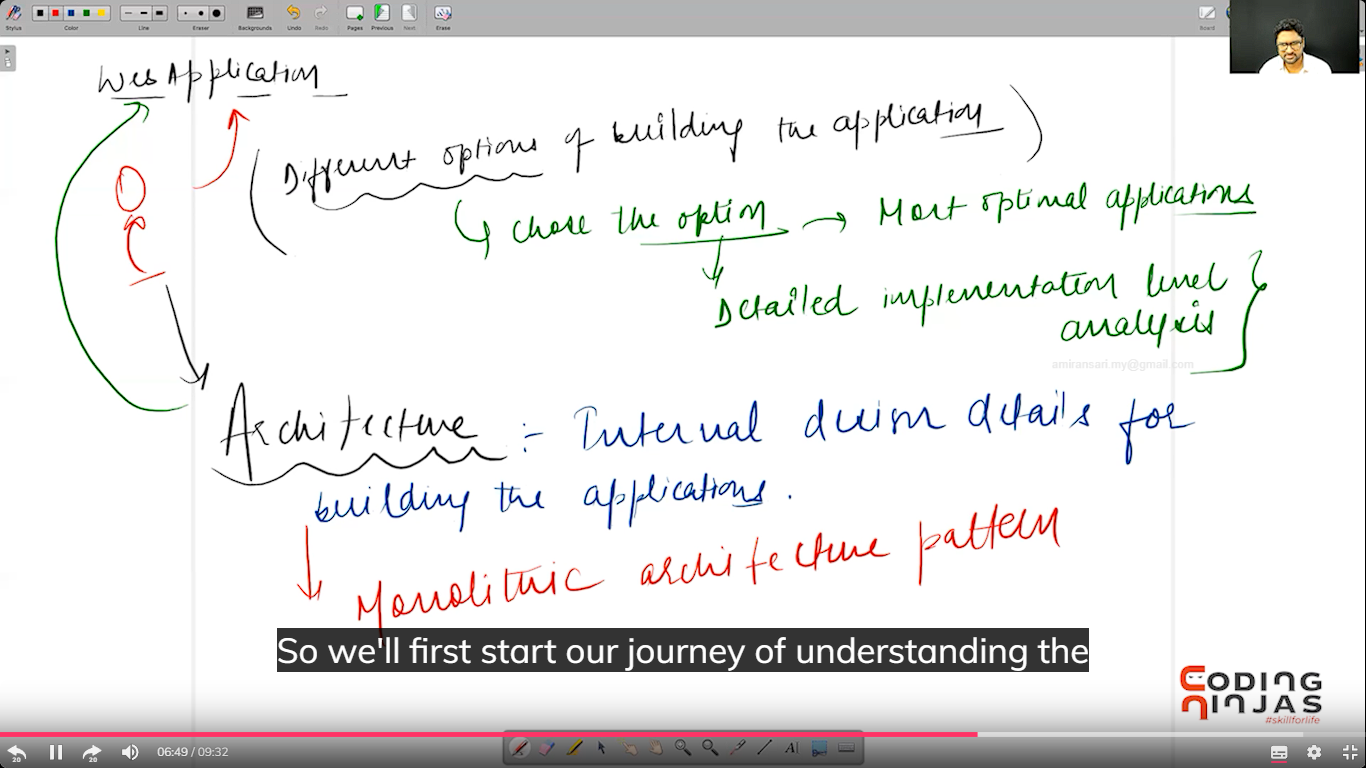 Stylus Color Line Eraser Backgrounds Undo Redo Pages Previous Next Erase Board
Web Application
(Different options of building the application)
Chose the option → Most optimal applications
Detailed implementation level
analysis
amiransari.my@gmail.com
Architecture :- Internal design details for
building the applications.
Monolithic architecture pattern
So we'll first start our journey of understanding the
CODING
NINJAS
#skillforlife
20 20 06:49 / 09:32